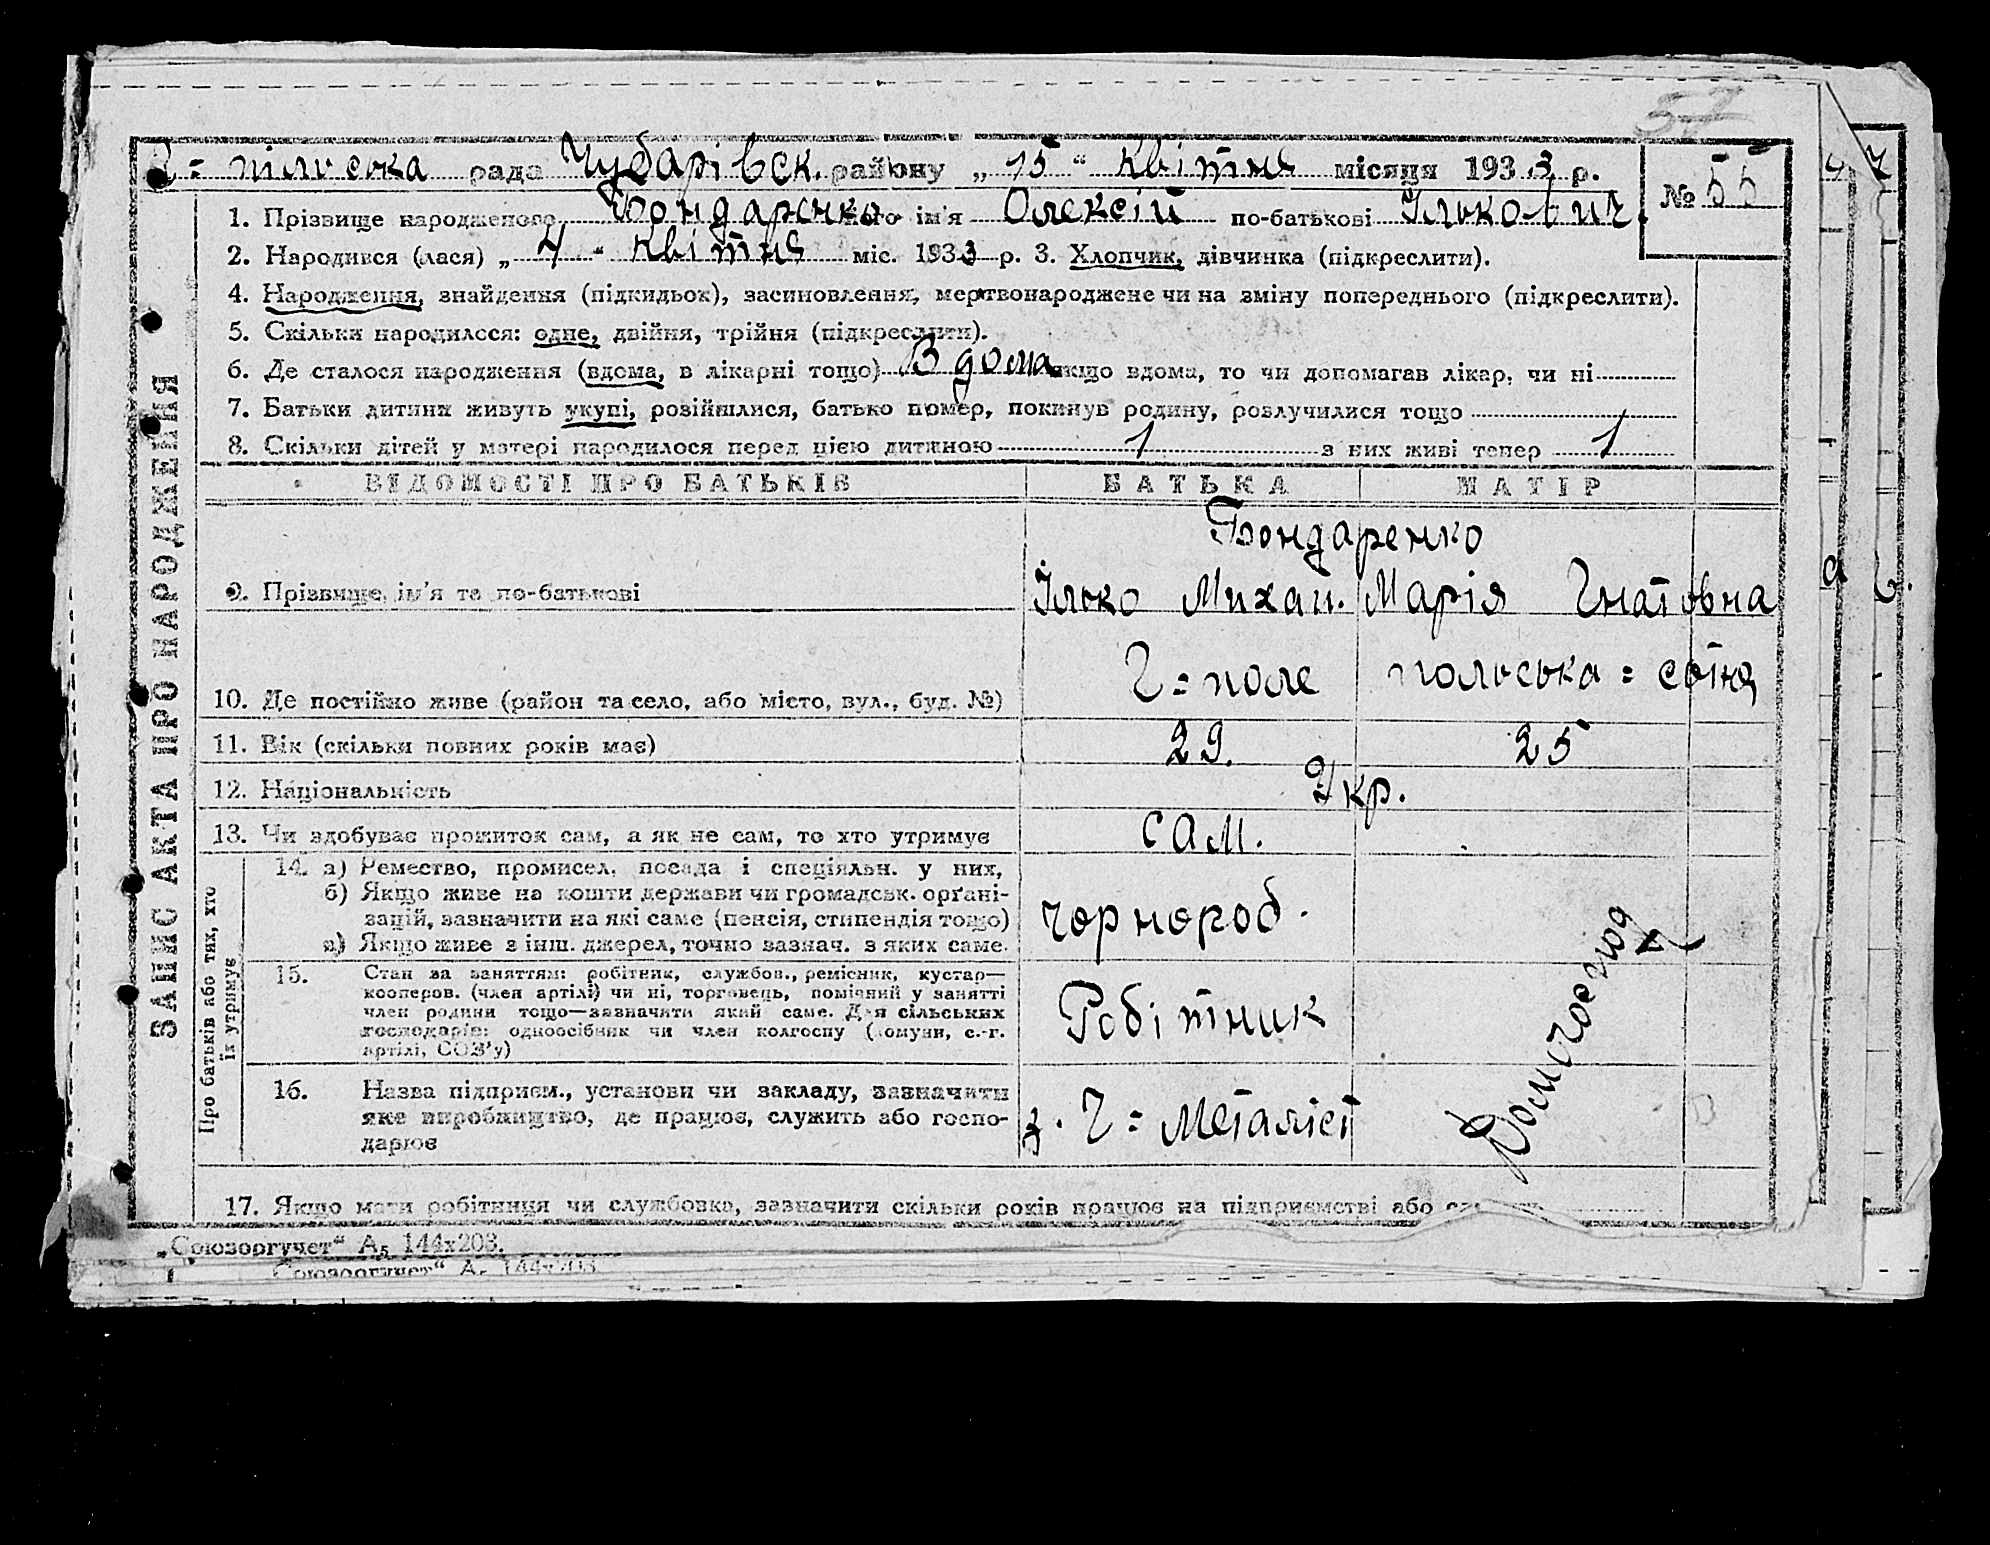 57
Г=пільська рада Чубарівск. району „15“ Квітня місяця 1933 р.
№ 55
1. Прізвище народженого Бондаренко його ім'я Олексій по-батькові Ількович
2. Народився (лася) „4“ Квітня міс. 1933 р. 3. Хлопчик, дівчинка (підкреслити).
4. Народження, знайдення (підкидьок), засиновлення, мертвонароджене чи на зміну попереднього (підкреслити).
5. Скільки народилося: одне, двійня, трійня (підкреслити).
6. Де сталося народження (вдома, в лікарні тощо) В дома якщо вдома, то чи допомагав лікар, чи ні
7. Батьки дитини живуть укупі, розійшлися, батько помер, покинув родину, розлучилися тощо
8. Скільки дітей у матері народилося перед цією дитиною 1 з них живі тепер 1
ЗАПИС АКТА ПРО НАРОДЖЕННЯ
ВІДОМОСТІ ПРО БАТЬКІВ БАТЬКА МАТІР
Бондаренко
9. Прізвище, ім'я та по-батькові Ілько Михай. Марія Гнатовна
10. Де постійно живе (район та село, або місто, вул., буд. №) Г=поле польська=сотня
11. Вік (скільки повних років має) 29. 25
12. Національність Укр.
13. Чи здобуває прожиток сам, а як не сам, то хто утримує сам.
Про батьків або тих, хто
їх утримує
14. а) Ремество, промисел, посада і спеціяльн. у них,
б) Якщо живе на кошти держави чи громадськ. орґані-
зацій, зазначити на які саме (пенсія, стипендія тощо)
в) Якщо живе з інш. джерел, точно зазнач. з яких саме.
чорнороб.
15. Стан за заняттям: робітник, службов., ремісник, кустар—
кооперов. (член артілі) чи ні, торговець, помічний у занятті
член родини тощо—зазначити який саме. Для сільських
господарів: одноосібник чи член колгоспу (комуни, с.-г.
артілі, СОЗ'у)
Робітник
16. Назва підприєм., установи чи закладу, зазначити
яке виробництво, де працює, служить або госпо-
дарює
з. Г=Металіст
17. Якщо мати робітниця чи службовка, зазначити скільки років працює на підприємстві або
„Союзоргучет“ А₅ 144х203.
Союзоргучет“ А₅ 144х203